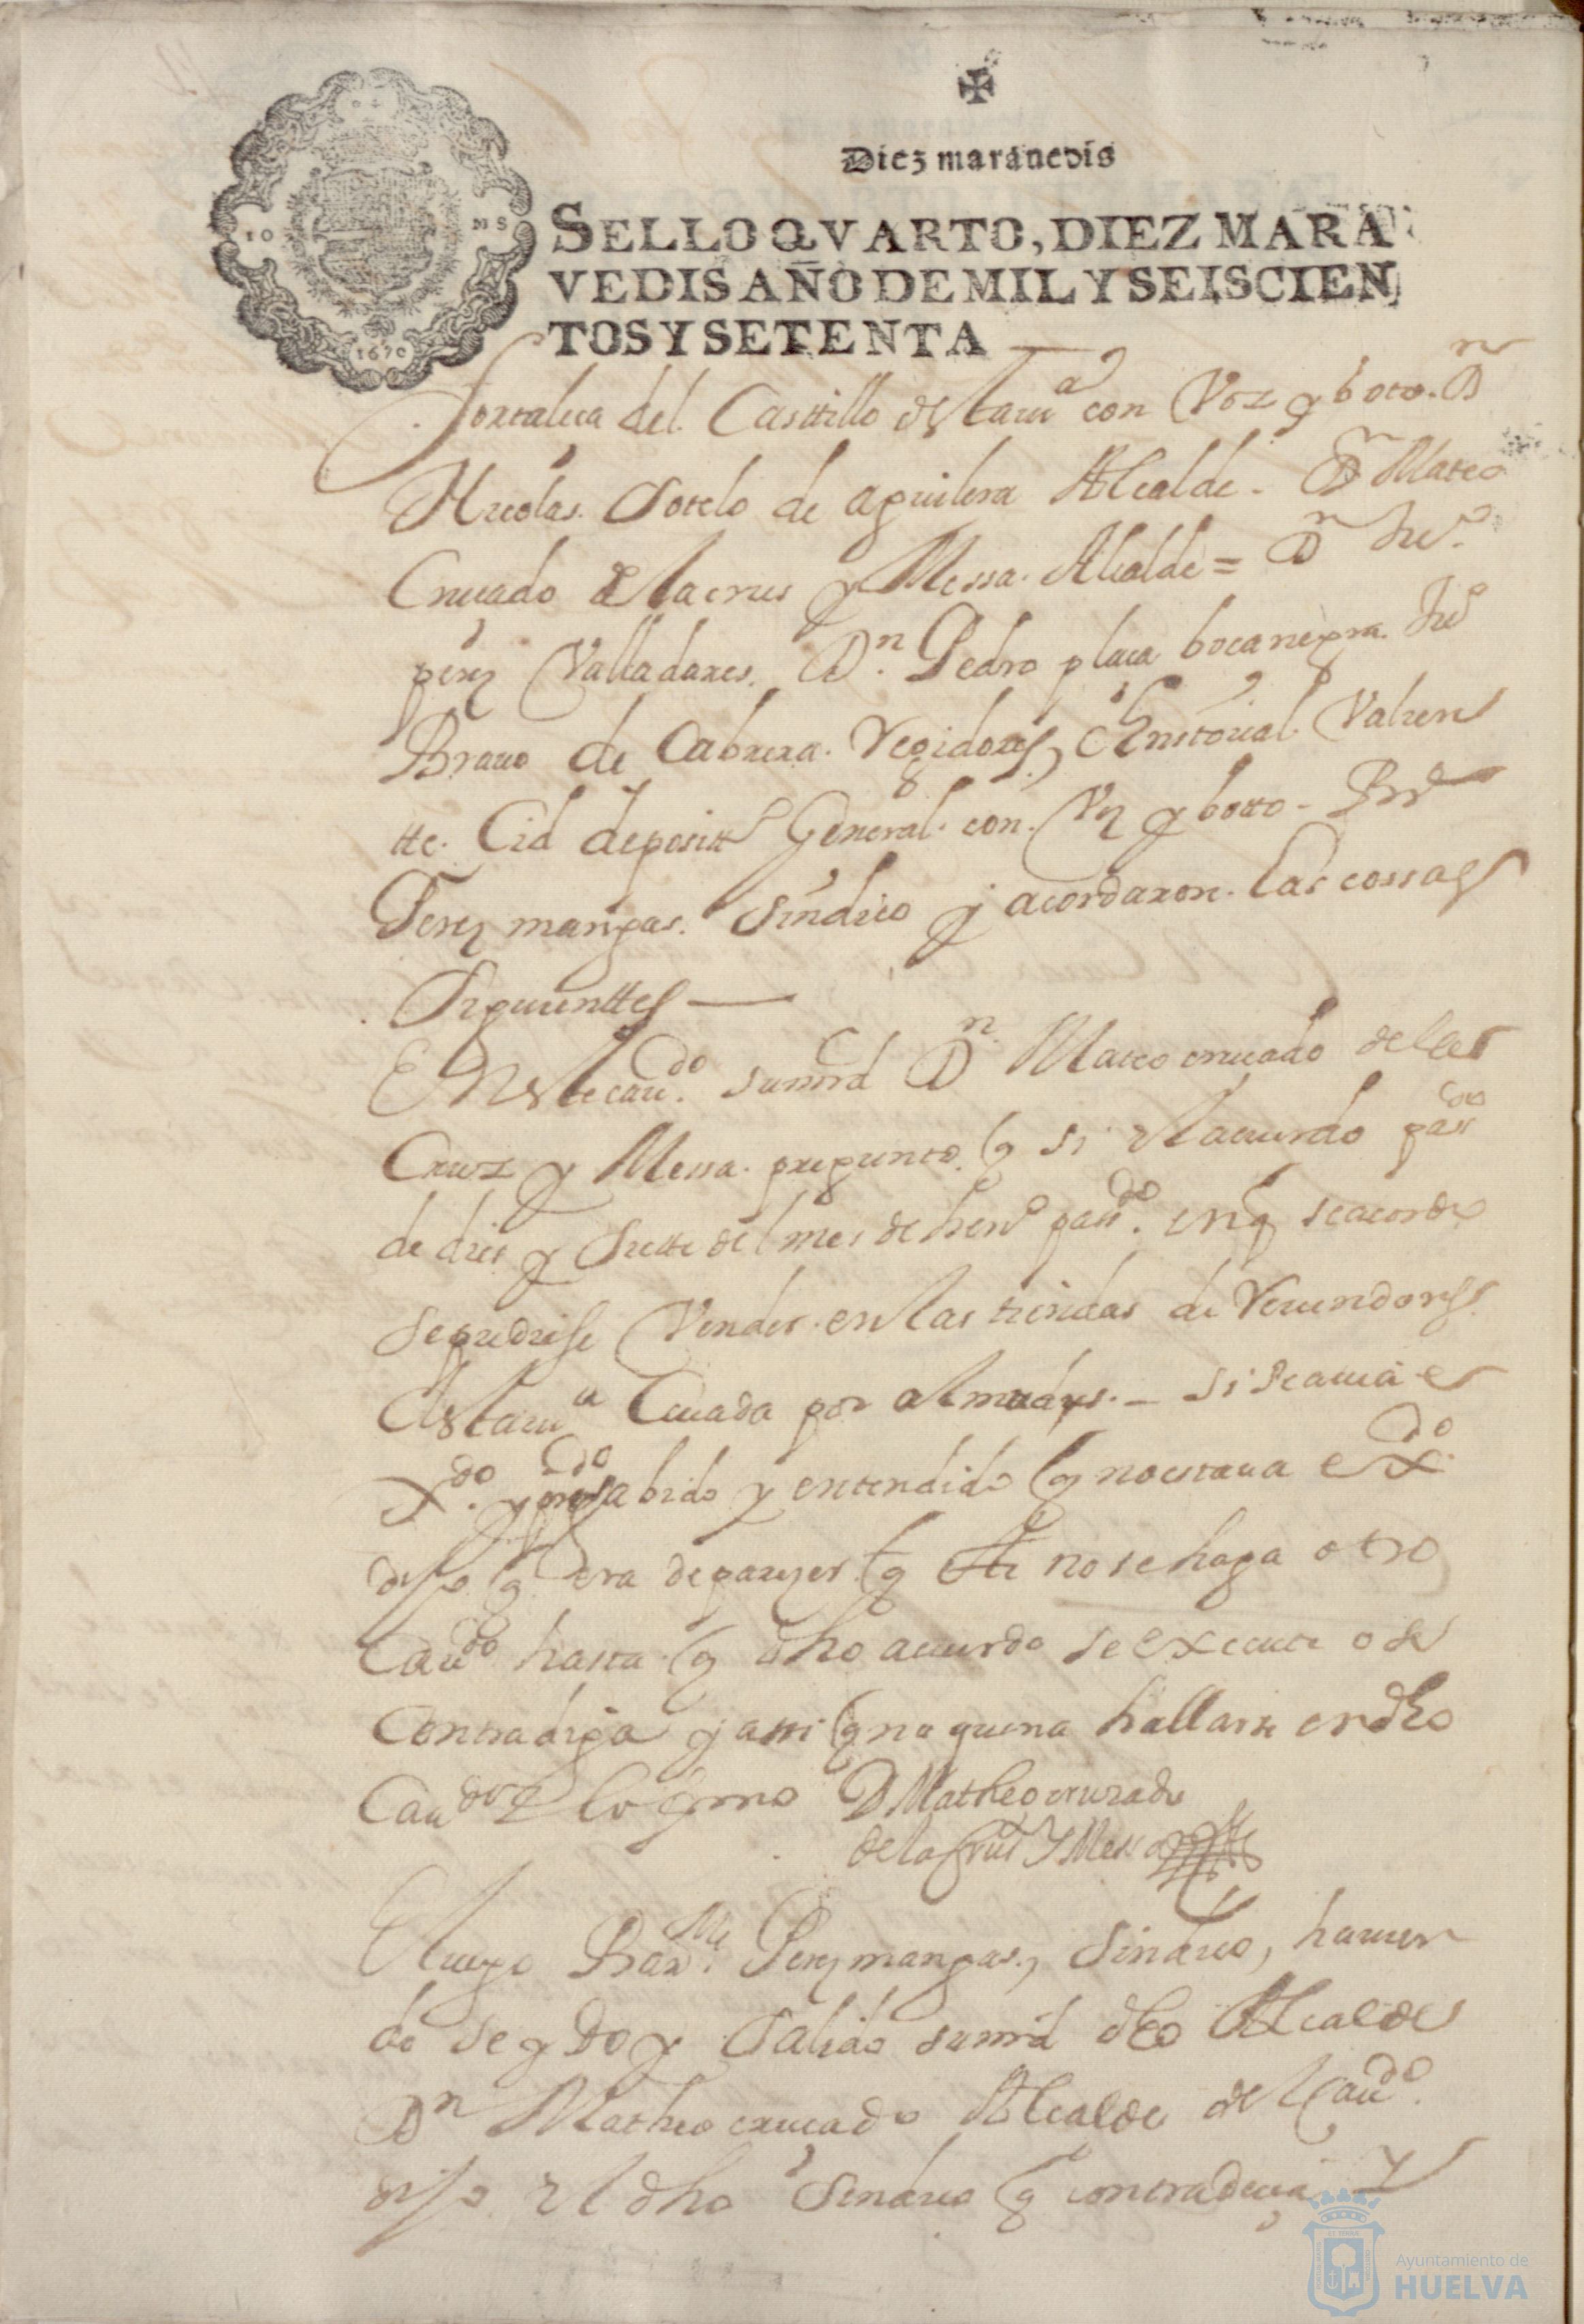 Diez maravedis
SELLO QVARTO, DIEZ MARA
VEDIS AÑO DE MIL Y SEISCIEN
TOS Y SETENTA
10 MS
1670
fortaleça del Casttillo desta uª con Voz y boto. Dn
Nicolas Sotelo de aguilera Alcalde - Dn Mateo
Cruçado de la crus y Messa Alcalde = Dn Juº
perez Valladares. Dn. Pedro plaça bocanegra. Juº
Brauo de Cabrera. Regidores, Cristoual Valien
tte. Cid deposittº General con. Vz y botto -
Perez mangas. Sindico y acordaron las cossas
Siguienttes
En este cauº. sumrd Dn Mateo cruçado de la
Cruz y Messa. pregunto q si el acuerdo pasdo
de dies y Siette del mes de henº pasdo. en q se acordo
se pudiese Vender en las tiendas de
esta uª por almudes. - si se auia e
xdo. y sabido y entendido q no estaua exdo.
dijo q era de pareçer q no se haga otro
Caudo hasta q dho acuerdo se execute o se
Contradiga y assi q no queria hallarse en dho
Caudo e lo firmo D Matheo cruzado
de la Crus Y Messa
El luego Barme. Perez mangas, Sindico, hauien
do se ydo y Salido sumrd dho Alcalde
Dn Matheo cruçado Alcalde del Caudo.
dijo el dho Sindico q contradeçia Y
Ayuntamiento de
HUELVA